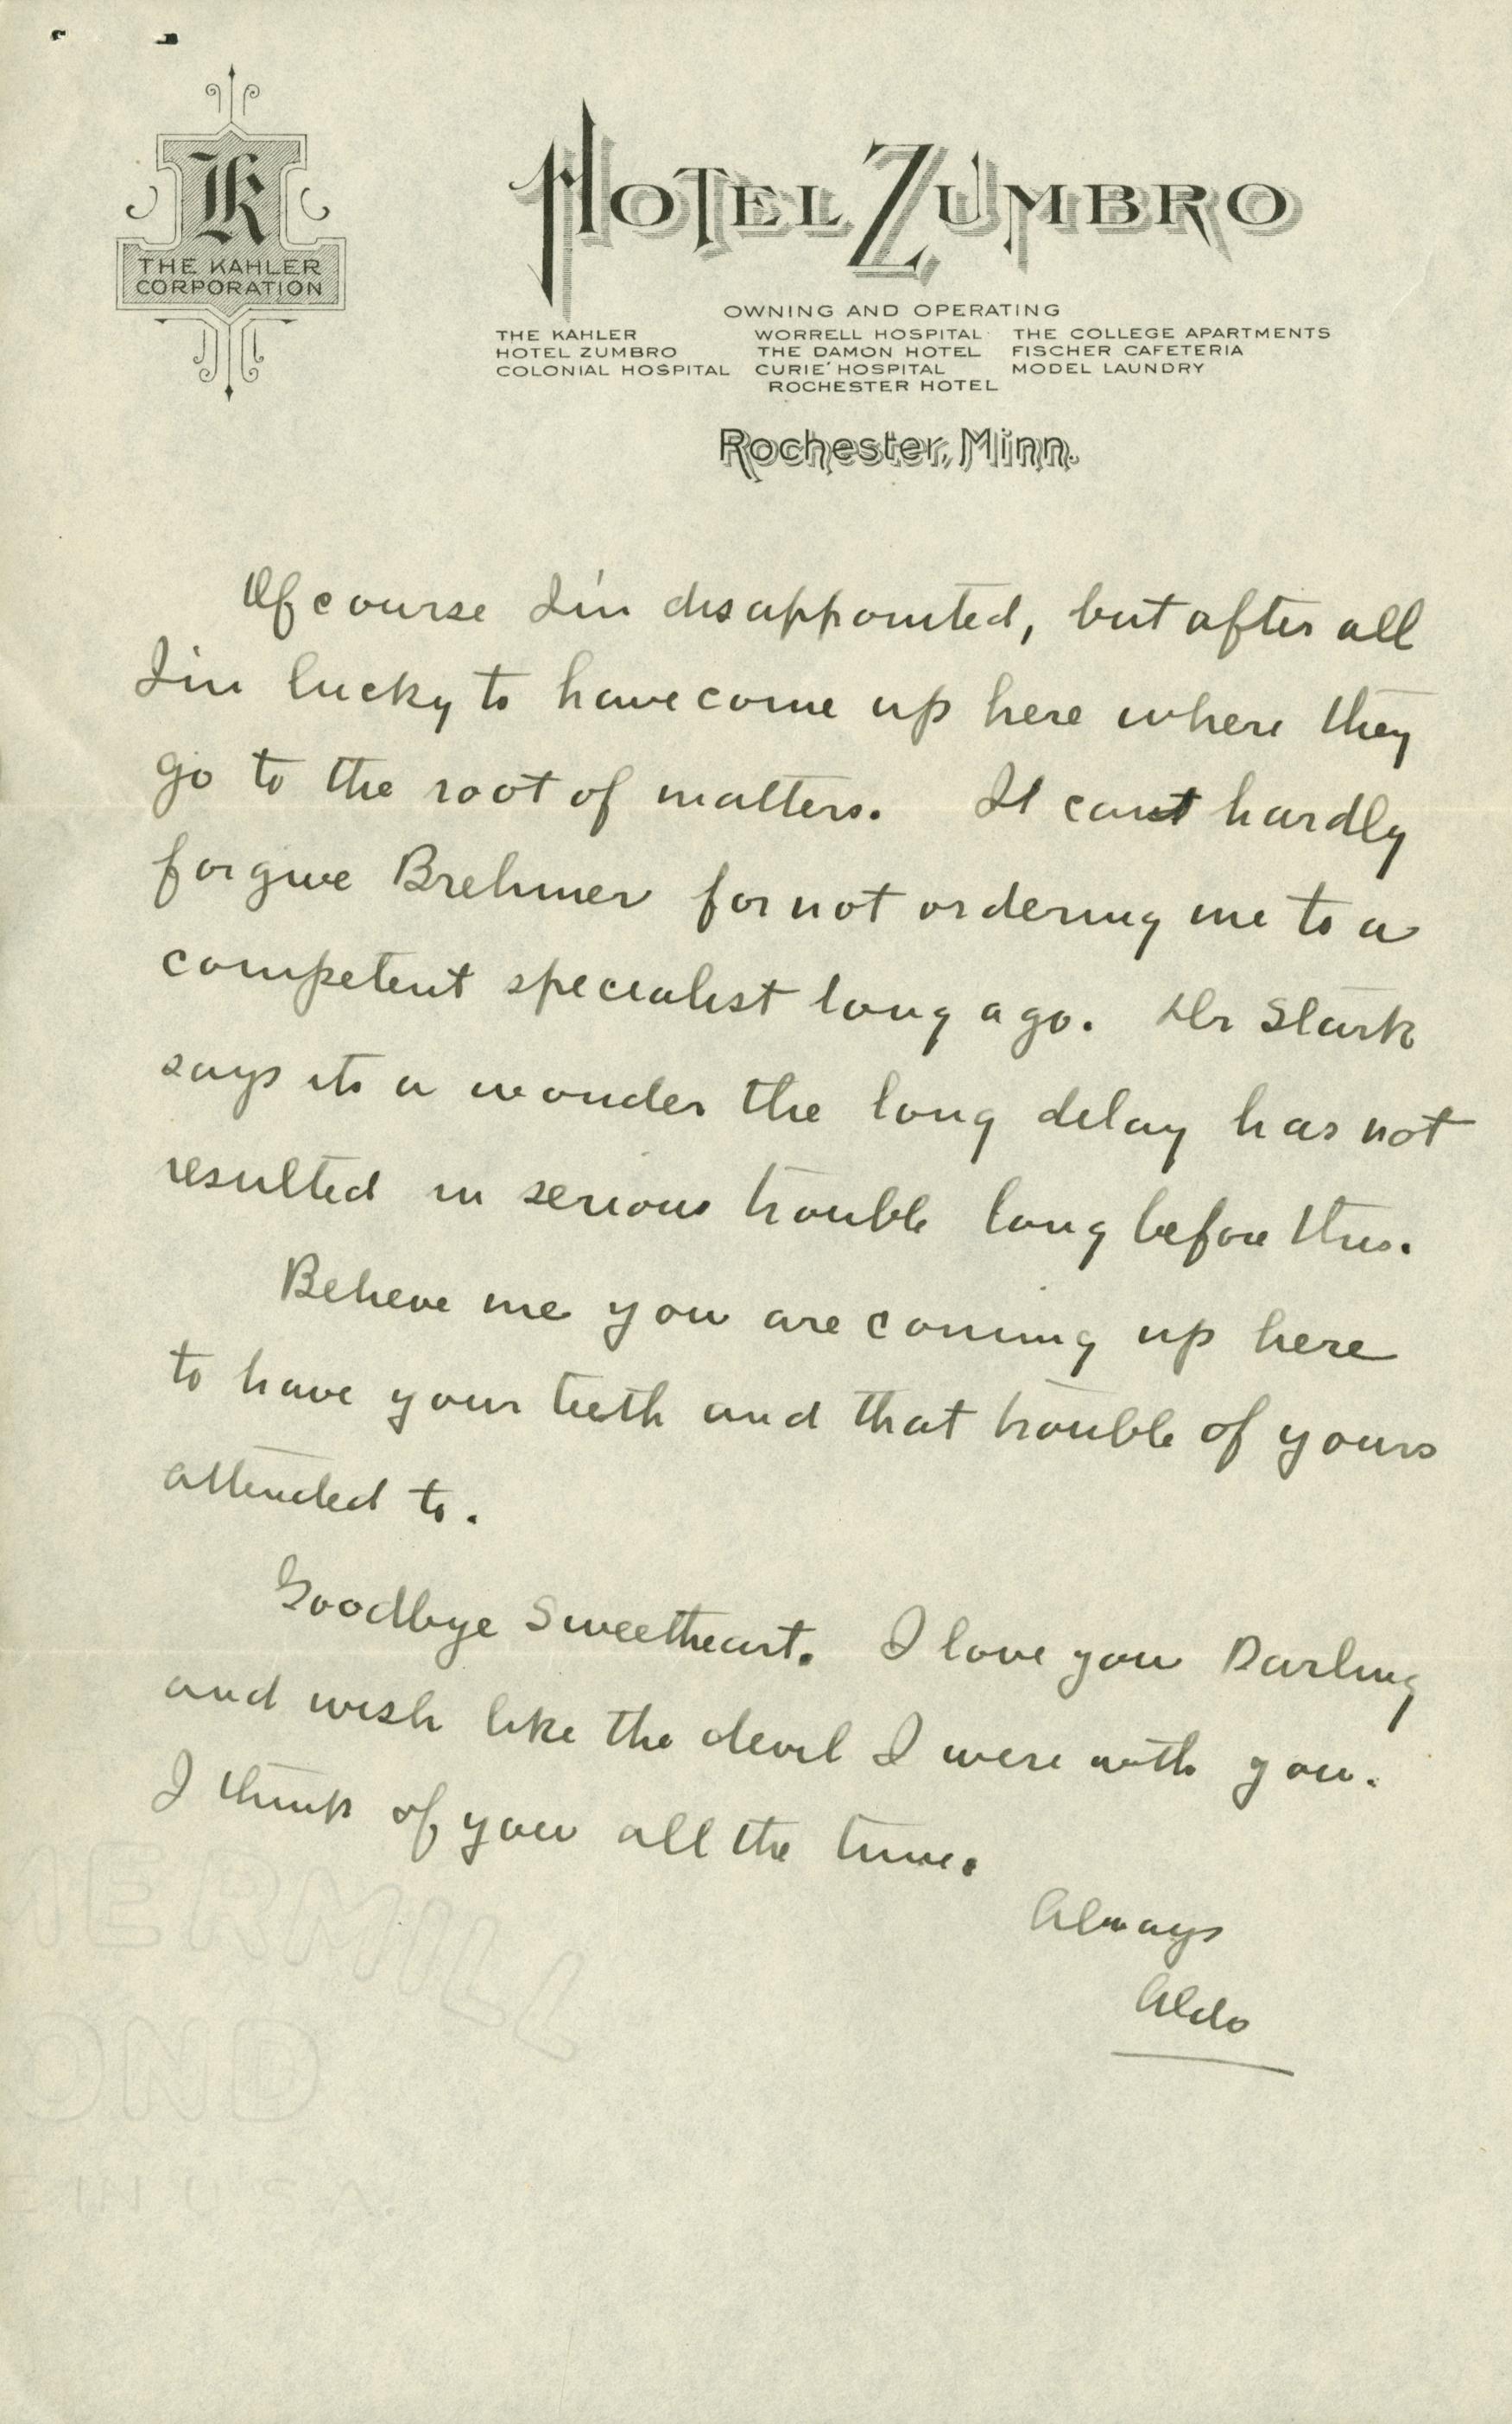 K
THE KAHLER
CORPORATION
HOTEL ZUMBRO
OWNING AND OPERATING
THE KAHLER WORRELL HOSPITAL THE COLLEGE APARTMENTS
HOTEL ZUMBRO THE DAMON HOTEL FISCHER CAFETERIA
COLONIAL HOSPITAL CURIE HOSPITAL MODEL LAUNDRY
ROCHESTER HOTEL
Rochester, Minn.
Of course I'm disappointed, but after all
I'm lucky to have come up here where they
go to the root of matters. I cant hardly
forgive Brehmer for not ordering me to a
competent specialist long ago. Dr Stark
says its a wonder the long delay has not
resulted in serious trouble long before this.
Believe me you are coming up here
to have your teeth and that trouble of yours
attended to.
Goodbye Sweetheart. I love you Darling
and wish like the devil I were with you.
I think of you all the time.
Always
Aldo
MERMILL
OND
E IN U.S.A.